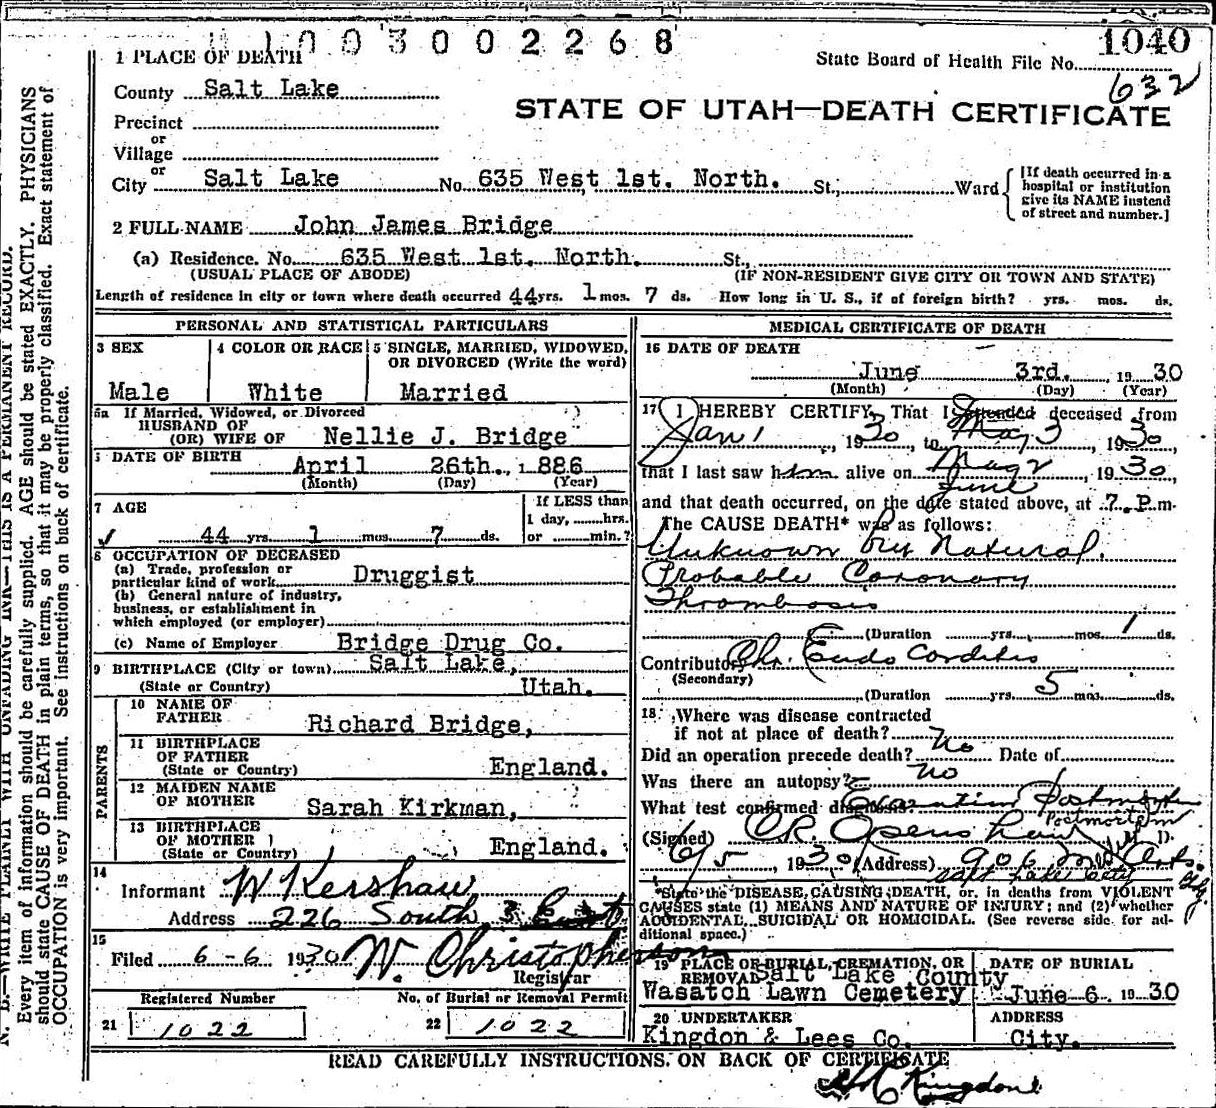 1003002268
1040
632
1 PLACE OF DEATH
State Board of Health File No.
County Salt Lake
STATE OF UTAH—DEATH CERTIFICATE
Precinct
or
Village
or
City Salt Lake No. 635 West 1st. North. St.; Ward
[If death occurred in a hospital or institution give its NAME instead of street and number.]
2 FULL NAME John James Bridge
(a) Residence. No. 635 West 1st. North. St.,
(USUAL PLACE OF ABODE) (IF NON-RESIDENT GIVE CITY OR TOWN AND STATE)
Length of residence in city or town where death occurred 44 yrs. 1 mos. 7 ds. How long in U. S., if of foreign birth? yrs. mos. ds.
PERSONAL AND STATISTICAL PARTICULARS
3 SEX 4 COLOR OR RACE 5 SINGLE, MARRIED, WIDOWED,
OR DIVORCED (Write the word)
Male White Married
5a If Married, Widowed, or Divorced
HUSBAND OF
(OR) WIFE OF Nellie J. Bridge
DATE OF BIRTH
April 26th., 1886
(Month) (Day) (Year)
7 AGE If LESS than
1 day, hrs.
44 yrs. 1 mos. 7 ds. or min.?
8 OCCUPATION OF DECEASED
(a) Trade, profession or
particular kind of work Druggist
(b) General nature of industry,
business, or establishment in
which employed (or employer)
(c) Name of Employer Bridge Drug Co.
9 BIRTHPLACE (City or town) Salt Lake,
(State or Country) Utah.
PARENTS
10 NAME OF
FATHER Richard Bridge,
11 BIRTHPLACE
OF FATHER
(State or Country) England.
12 MAIDEN NAME
OF MOTHER Sarah Kirkman,
13 BIRTHPLACE
OF MOTHER
(State or Country) England.
14
Informant W Kershaw
Address 226 South 3 East
15
Filed 6-6 1930 W. Christopherson
Registrar
Registered Number No. of Burial or Removal Permit
21 1022 22 1022
MEDICAL CERTIFICATE OF DEATH
16 DATE OF DEATH
June 3rd., 1930
(Month) (Day) (Year)
17 I HEREBY CERTIFY, That I attended deceased from
Jan 1, 1930, to May 3 1930
that I last saw him alive on May 2, 1930,
June
and that death occurred, on the date stated above, at 7. P. m.
The CAUSE DEATH* was as follows:
Unknown but Natural.
Probable Coronary
Thrombosis
(Duration yrs. mos. 1 ds.
Contributory Chr. Endo Carditis
(Secondary)
(Duration yrs. 5 mos. ds.
18 Where was disease contracted
if not at place of death?
Did an operation precede death? No Date of
Was there an autopsy? No
What test confirmed diagnosis? Postmortem
Postmortem
(Signed) C.R. Openshaw M. D.
6/5, 1930 (Address) 906 Med Arts. Bldg.
Salt Lake City
*State the DISEASE CAUSING DEATH, or, in deaths from VIOLENT
CAUSES state (1) MEANS AND NATURE OF INJURY; and (2) whether
ACCIDENTAL, SUICIDAL OR HOMICIDAL. (See reverse side for ad-
ditional space.)
19 PLACE OR BURIAL, CREMATION, OR DATE OF BURIAL
REMOVAL Salt Lake County
Wasatch Lawn Cemetery June 6. 1930
20 UNDERTAKER ADDRESS
Kingdon & Lees Co. City.
READ CAREFULLY INSTRUCTIONS ON BACK OF CERTIFICATE
Kingdon
N. B.—WRITE PLAINLY WITH UNFADING INK—THIS IS A PERMANENT RECORD.
Every item of information should be carefully supplied. AGE should be stated EXACTLY. PHYSICIANS
should state CAUSE OF DEATH in plain terms, so that it may be properly classified. Exact statement of
OCCUPATION is very important. See instructions on back of certificate.